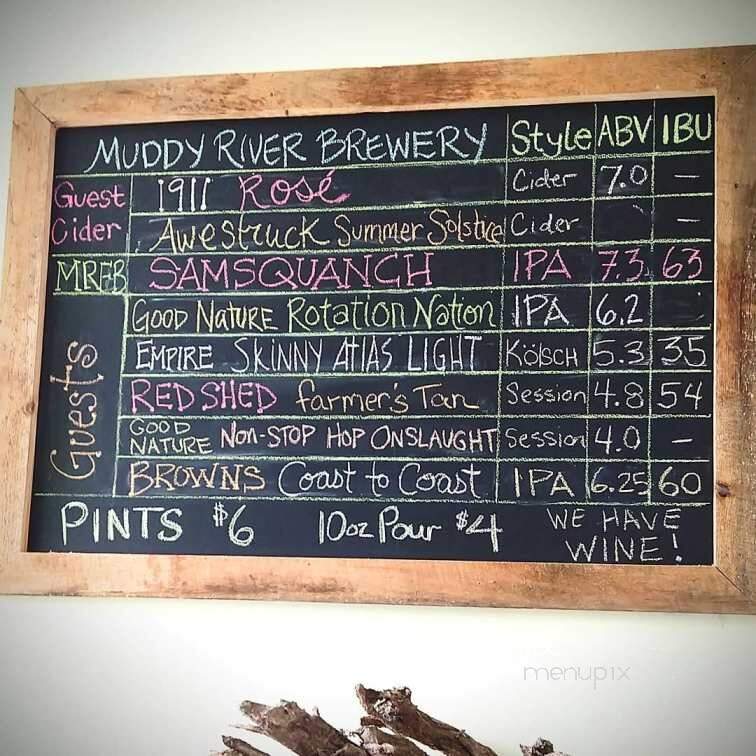 MUDDY RIVER BREWERY Style ABV IBU
Guest Cider 1911 Rosé Cider 7.0 —
Awestruck Summer Solstice Cider —
MRFB SAMSQUANCH IPA 7.3 63
Guests GOOD NATURE Rotation Nation IPA 6.2
EMPIRE SKINNY ATLAS LIGHT KÖLSCH 5.3 35
RED SHED farmer's Tan Session 4.8 54
GOOD NATURE NON-STOP HOP ONSLAUGHT Session 4.0 —
BROWNS Coast to Coast IPA 6.25 60
PINTS $6 10oz Pour $4 WE HAVE WINE!
menupix